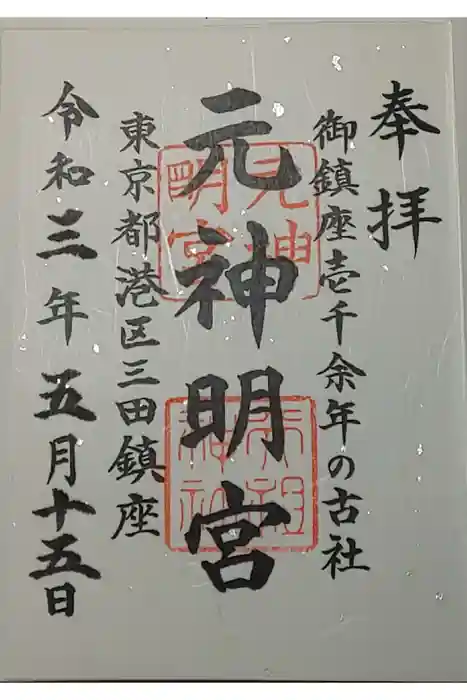 奉拝
御鎮座壱千余年の古社
元神明宮
東京都港区三田鎮座
令和三年五月十五日
元神
明宮